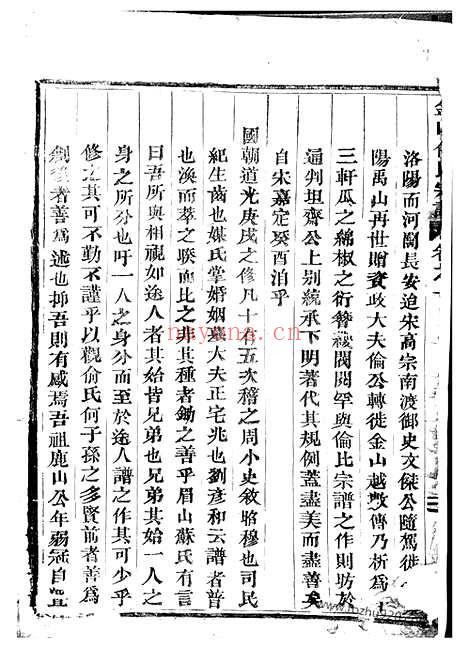 洛陽而河閒長安迨宋高宗南渡御史文傑公隨駕徙
陽禹山再世贈資政大夫倫公轉徙金山越數傳乃析爲
三軒瓜之綿椒之衍簪纓閥閱罕與倫比宗譜之作則昉於
通判坦齋公上别統承下明著代其規例蓋盡美而盡善矣
自宋嘉定癸酉洎乎
國朝道光庚戌之修凡十五次稽之周小史敘昭穆也司民
紀生齒也媒氏掌婚姻墓大夫正宅兆也劉彥和云譜者普
也渙而萃之睽而比之非其種者鋤之善乎眉山蘇氏有言
曰吾所與相視如途人者其始皆兄弟也兄弟其始一人之
身之所分也吁一人之身分而至於途人譜之作其可少乎
修之其可不勤不謹乎以觀俞氏何子孫之多賢前者善爲
創後者善爲述也抑吾則有感焉吾祖鹿山公年弱冠自
nayona.cn